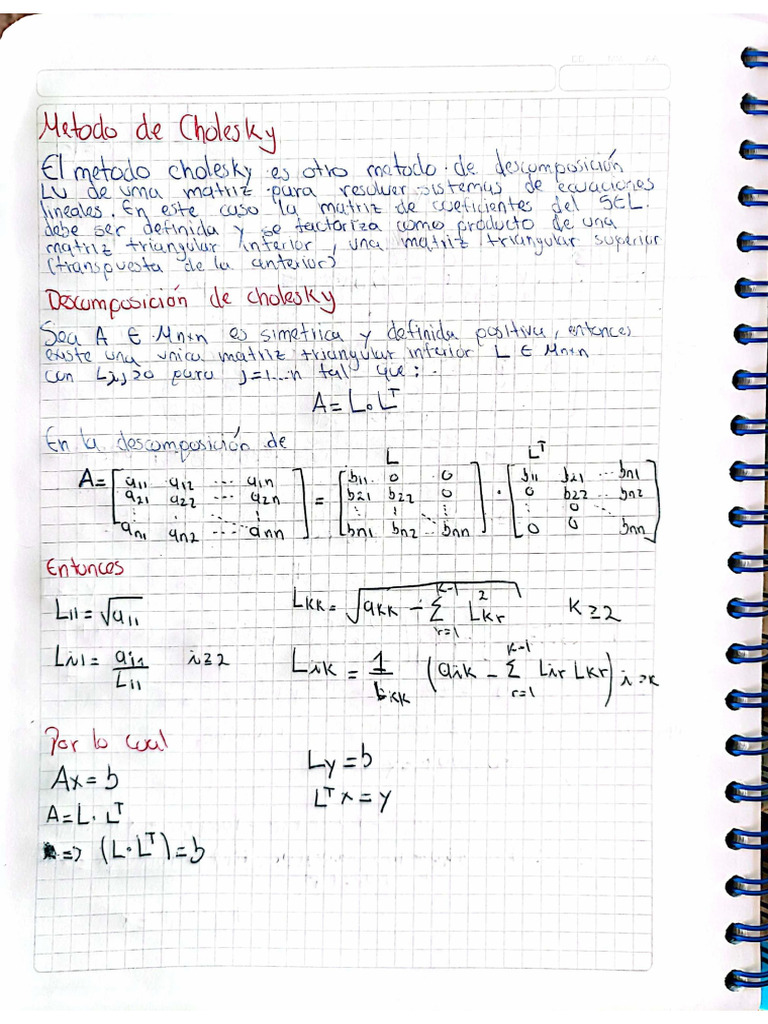 Metodo de Cholesky
El metodo cholesky es otro metodo de descomposición
LU de uma matriz para resolver sistemas de ecuaciones
lineales. En este caso la matriz de coeficientes del SEL.
debe ser definida y se factoriza como producto de una
matriz triangular inferior, una matriz triangular superior
(transpuesta de la anterior)
Descomposición de cholesky
Sea A ∈ Mnxn es simetrica y definida positiva, entonces
existe una unica matriz triangular inferior L ∈ Mnxn
con Lj,j>0 para j=1...n tal que:
A = L∘L^T
En la descomposición de
L L^T
A= [a11 a12 ... a1n] = [b11 0 0] · [b11 b21 ... bn1]
[a21 a22 ... a2n] [b21 b22 0] [0 b22 ... bn2]
[⋮ ⋮ ⋱ ⋮] [⋮ ⋮ ⋱ ⋮] [⋮ 0 ⋱]
[an1 an2 ... ann] [bn1 bn2 ... bnn] [0 0 bnn]
Entonces
L11 = √a11 LKK = √(aKK - Σ_{r=1}^{K-1} L²Kr) K ≥ 2
Li1 = ai1/L11 i ≥ 2 LiK = 1/LKK (aiK - Σ_{r=1}^{K-1} Lir LKr) i>K
Por lo cual
Ax = b Ly = b
A = L · L^T L^T x = y
=> (L·L^T) = b